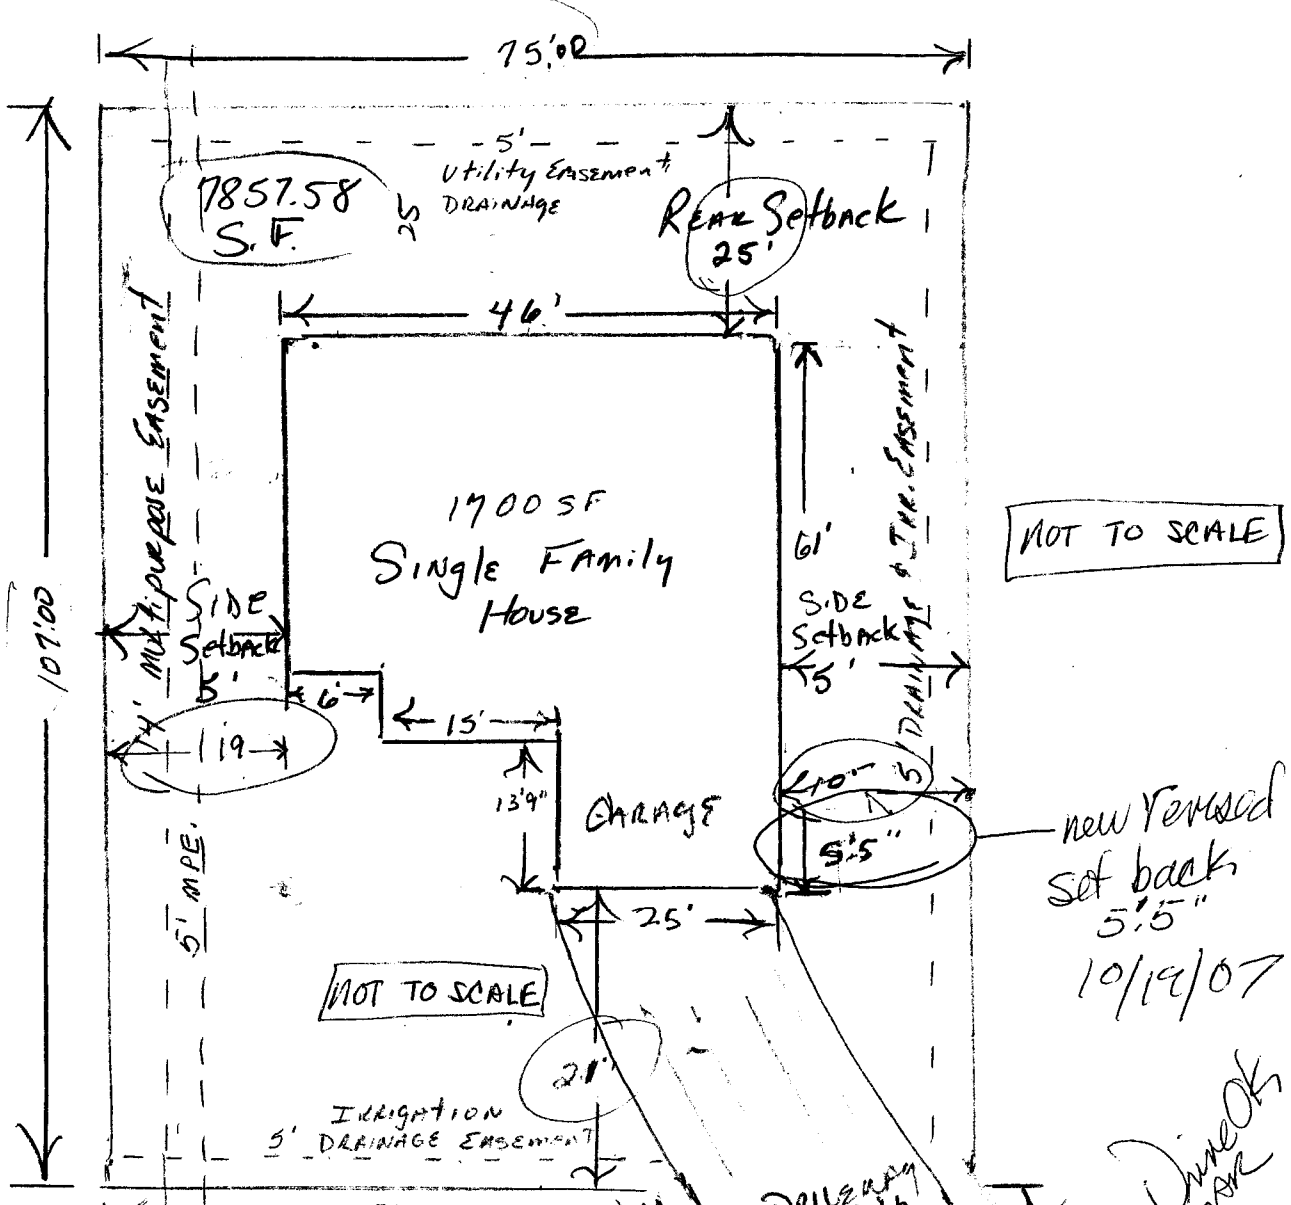 75'.00
5'
Utility Easement
DRAINAGE
7857.58
S.F.
25
REAR Setback
25'
46'
14' Multipurpose Easement
5' DRAINAGE & IRR. Easement
1700 SF
Single Family
House
NOT TO SCALE
61'
SIDE
Setback
5'
SIDE
Setback
5'
107.00
6'
15'
19
13'9"
GARAGE
10'
5'.5"
new revised
set back
5'.5"
10/19/07
5' MPE.
25'
NOT TO SCALE
21'
IRRIGATION
5' DRAINAGE Easement
Driveway